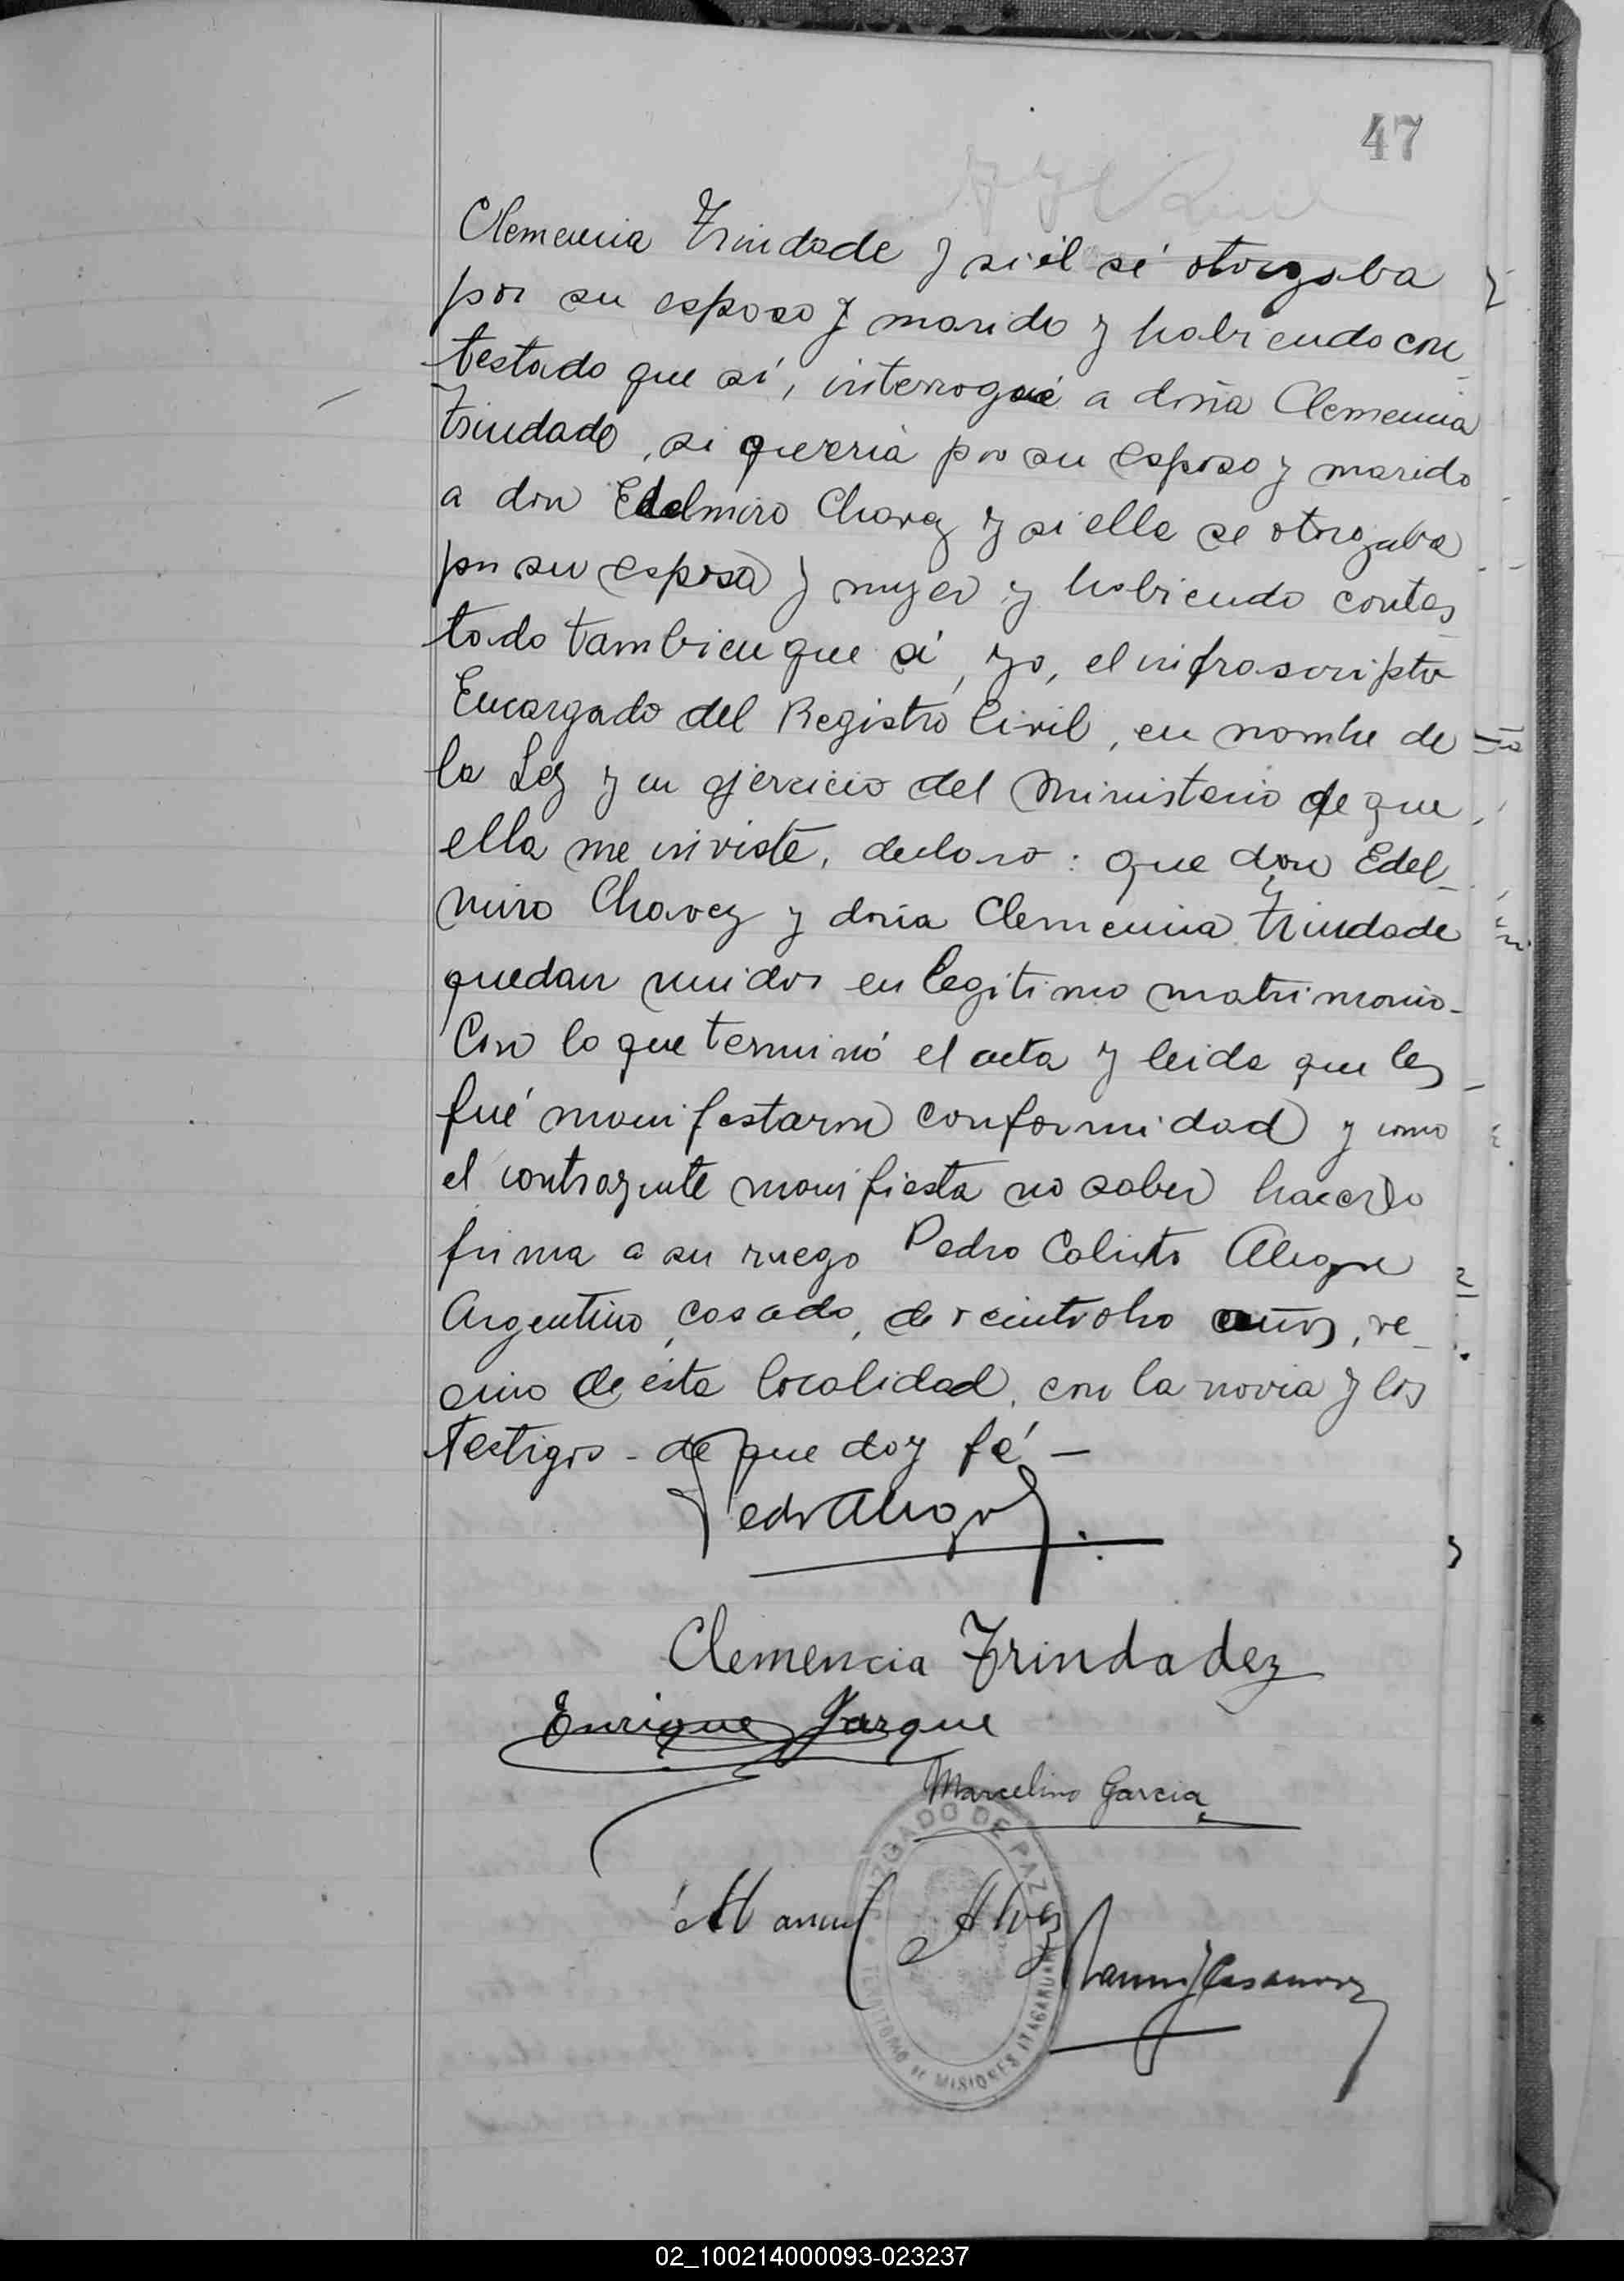 47
Clemencia Trindade y si él sé otorgaba
por su esposo y marido y habiendo con_
testado que sí, interrogué a doña Clemencia
Trindade, si querria por su esposo y marido
a don Edelmiro Chavez y si ella se otorgaba
por su esposa y mujer y habiendo contes_
tado tambien que sí, yo, el infrascripto
Encargado del Registro Civil, en nombre de
la Ley y en ejercicio del Ministerio de que
ella me inviste, declaro: que don Edel_
miro Chavez y doña Clemencia Trindade
quedan unidos en legitimo matrimonio_
Con lo que terminó el acta y leida que les
fué manifestaron conformidad y como
el contrayente manifiesta no saber hacerlo
firma a su ruego Pedro Calixto Alegre
Argentino, casado, de veintiocho años, ve_
cino de ésta localidad, con la novia y los
testigos - de que doy fé -
Pedro Alegre
Clemencia Trindadez
Enrique Jarque
Marcelino Garcia
Manuel Alvez
JUZGADO DE PAZ
TERRITORIO DE MISIONES ITACARUARE
02_100214000093-023237